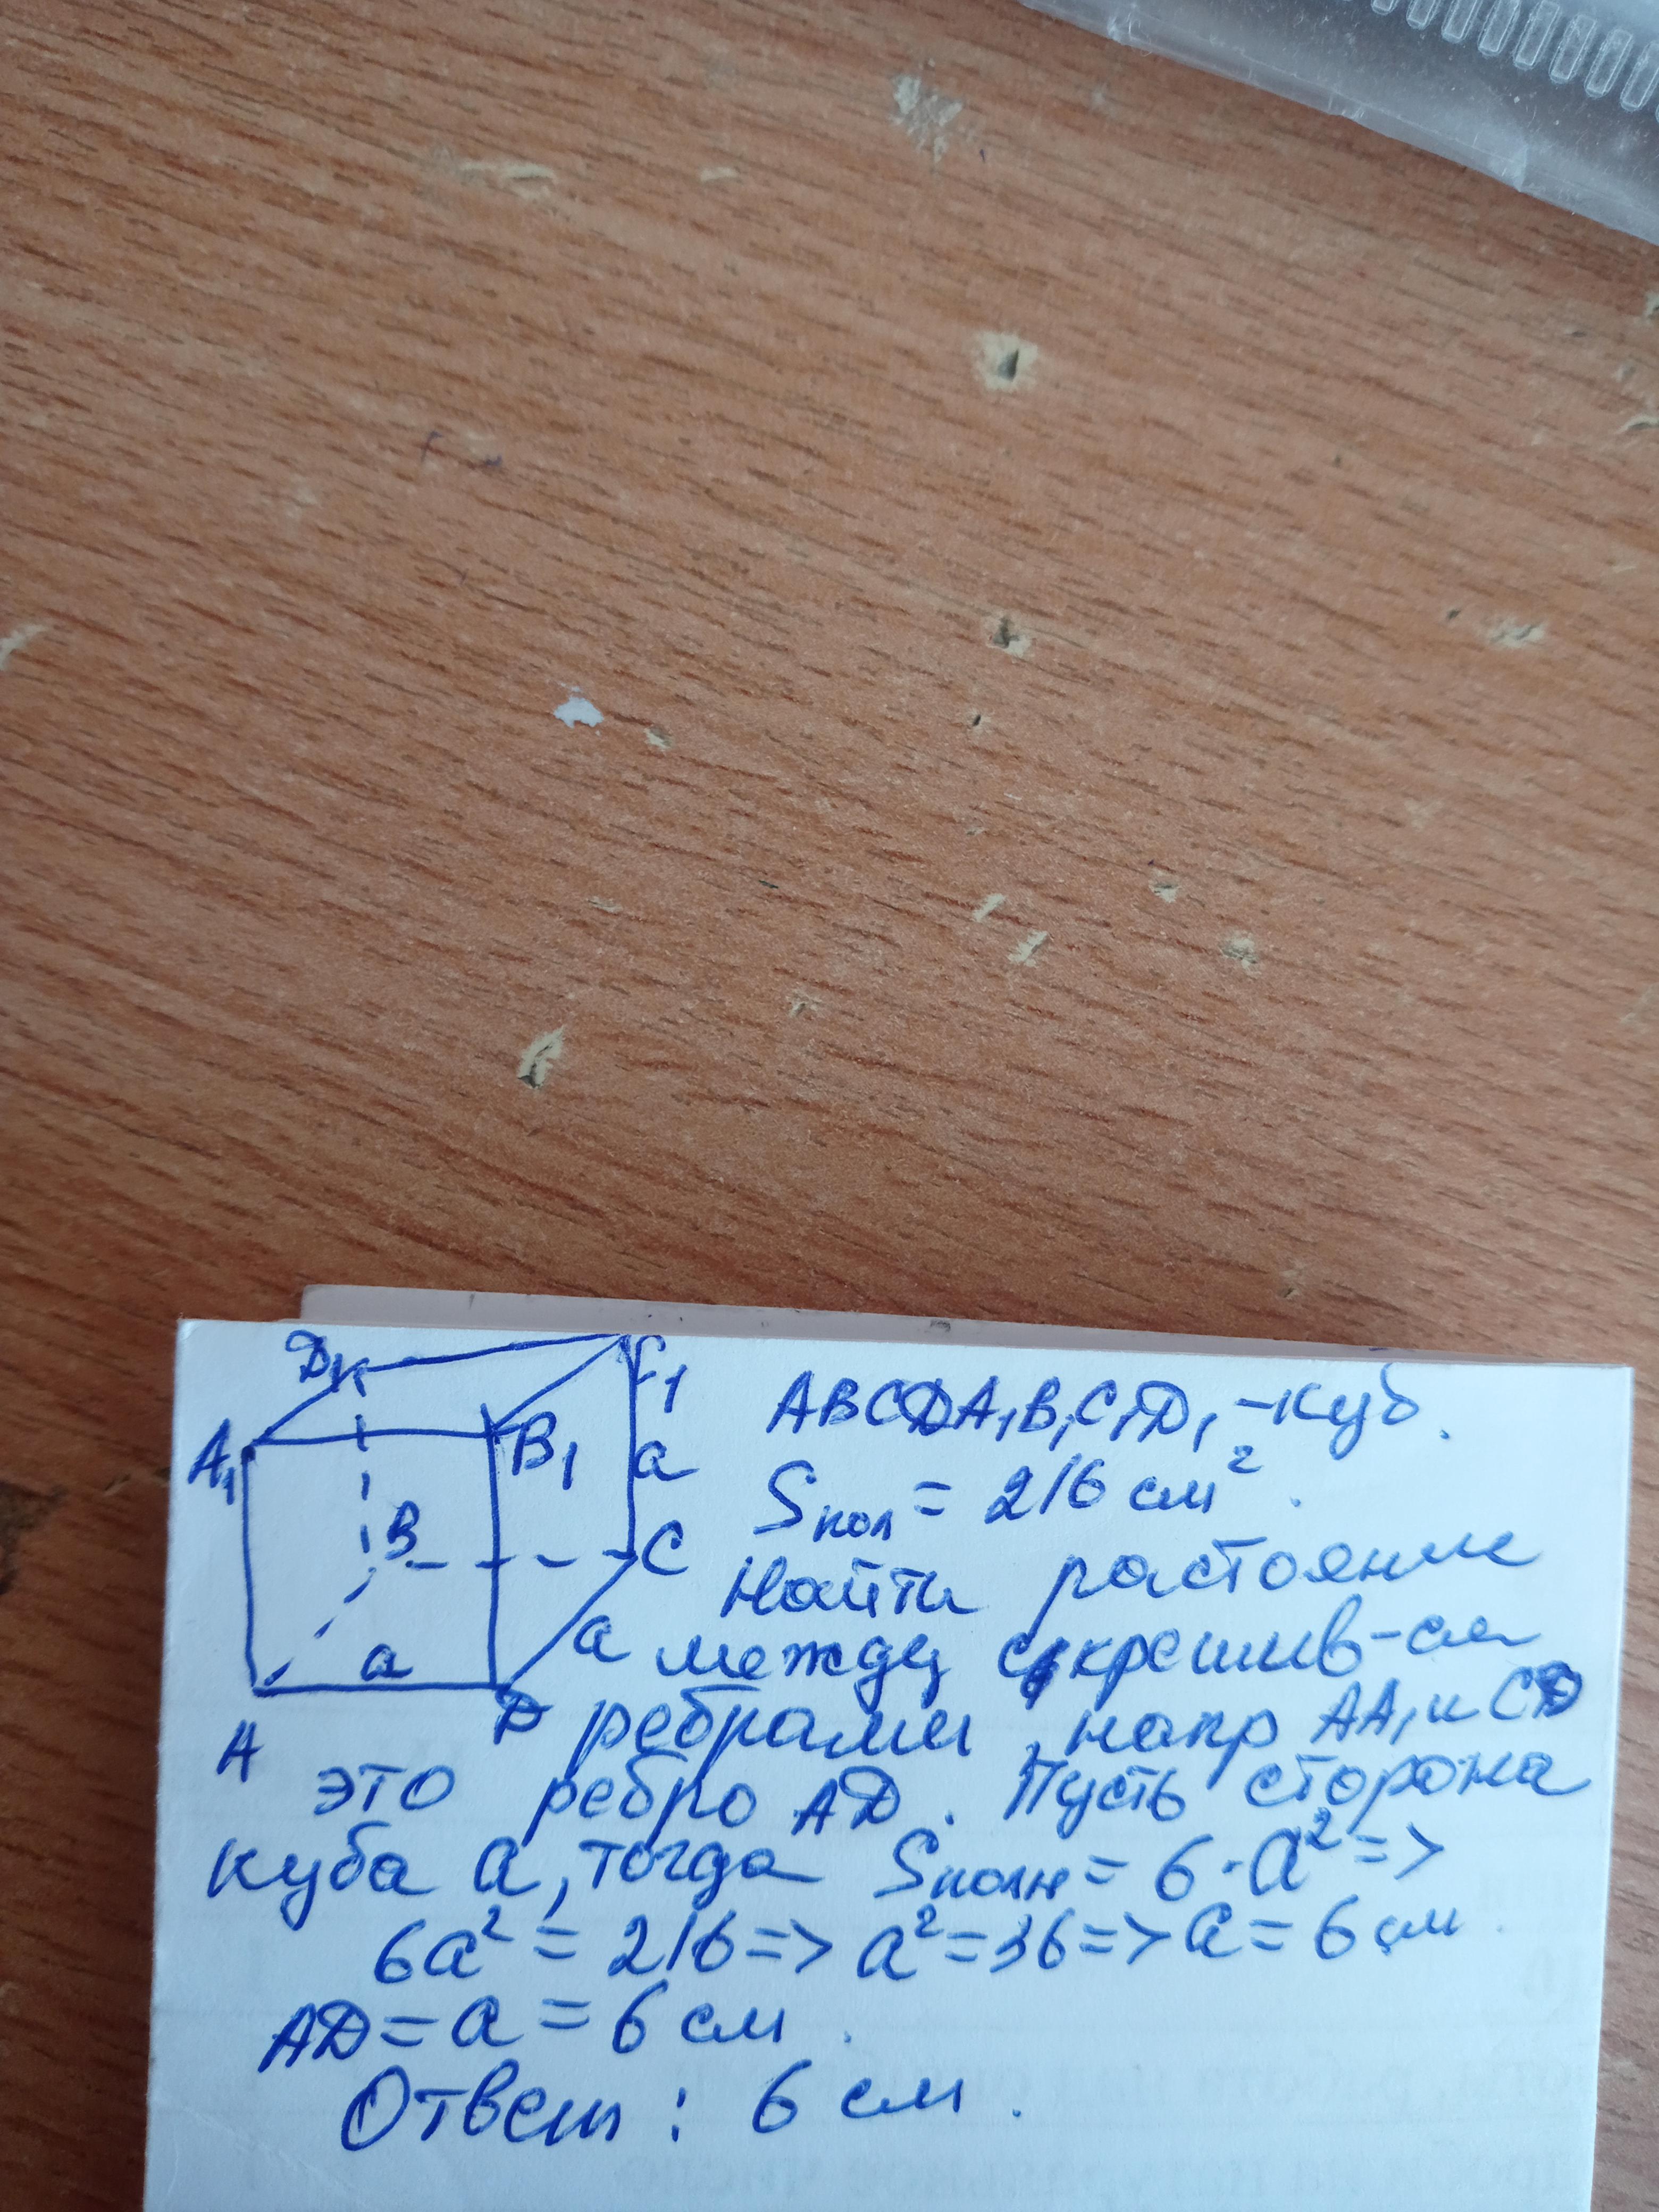 D₁
C₁
A₁
B₁
a
B
C
a
a
A
D
ABCDA₁B₁C₁D₁ - куб.
Sпол = 216 см².
Найти растояние
между скрещив-ся
ребрами, напр AA₁ и CD
это ребро AD. Пусть сторона
куба a, тогда Sполн = 6·a² =>
6a² = 216 => a² = 36 => a = 6 см.
AD = a = 6 см.
Ответ: 6 см.